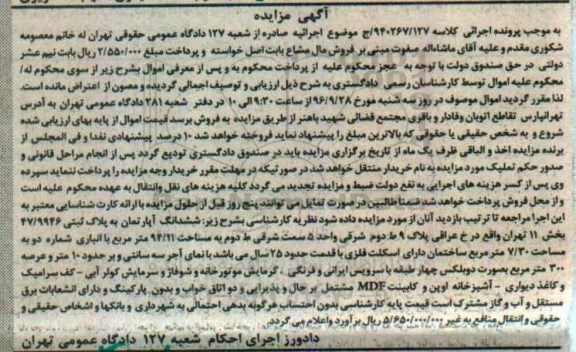 آگهی مزایده
به موجب پرونده اجرائی کلاسه ۹۴۰۲۶۷/۱۲۷/ج موضوع اجرائیه صادره از شعبه ۱۲۷ دادگاه عمومی حقوقی تهران له خانم معصومه
شکوری مقدم و علیه آقای ماشاءاله صفوت مبنی بر فروش مال مشاع بابت اصل خواسته و پرداخت مبلغ ۲/۵۵۰/۰۰۰ ریال بابت نیم عشر
دولتی در حق صندوق دولت با توجه به عجز محکوم علیه از پرداخت محکوم به و پس از معرفی اموال بشرح زیر از سوی محکوم له/
محکوم علیه اموال توسط کارشناسان رسمی دادگستری به شرح ذیل ارزیابی و توصیف اجمالی گردیده و مصون از اعتراض مانده است.
لذا مقرر گردید اموال موصوف در روز سه شنبه مورخ ۹۶/۹/۲۸ از ساعت ۹:۳۰ الی ۱۰ در دفتر شعبه ۲۸۱ دادگاه عمومی تهران به آدرس
تهرانپارس تقاطع اتوبان وفادار و باقری مجتمع قضائی شهید باهنر از طریق مزایده به فروش برسد قیمت اموال از پایه بهای ارزیابی شده
شروع و به شخص حقیقی یا حقوقی که بالاترین مبلغ را پیشنهاد نماید فروخته خواهد شد ۱۰ درصد پیشنهادی نقدا و فی المجلس از
برنده مزایده اخذ و الباقی ظرف یک ماه از تاریخ برگزاری مزایده باید در صندوق دادگستری تودیع گردد پس از انجام مراحل قانونی و
صدور حکم تملیک مورد مزایده به نام خریدار منتقل خواهد شد در صورتیکه در مهلت مقرر خریدار وجه مزایده را پرداخت ننماید سپرده
وی پس از کسر هزینه های اجرایی به نفع دولت ضبط و مزایده تجدید می گردد کلیه هزینه های نقل وانتقال به عهده محکوم علیه است
و از محل فروش پرداخت خواهد شد ضمنا طالبین در صورت تمایل می توانند پنج روز قبل از حلول مزایده با ارائه کارت شناسایی معتبر به
این اجرا مراجعه تا ترتیب بازدید آنان از مورد مزایده داده شود نظریه کارشناسی بشرح زیر: ششدانگ آپارتمان به پلاک ثبتی ۴۷/۹۹۴۶
بخش ۱۱ تهران واقع در خ عراقی پلاک ۹ ط دوم شرقی واحد ۵ سمت شرقی ط دوم به مساحت ۹۴/۱۱ متر مربع با انباری شماره دو به
مساحت ۷/۳۰ متر مربع ساختمان دارای اسکلت فلزی با قدمت حدود ۲۵ سال می باشد با نمای آجر سه سانتی و بر حدود ۱۰ متر و عرصه
۳۰۰ متر مربع بصورت دوبلکس چهار طبقه با سرویس ایرانی و فرنگی ، گرمایش موتورخانه و شوفاژ و سرمایش کولر آبی - کف سرامیک
و کاغذ دیواری - آشپزخانه اوپن و کابینت MDF مشتمل بر حال و پذیرایی و دو اتاق خواب و بدون پارکینگ و دارای انشعابات برق
مستقل و آب و گاز مشترک است قیمت پایه کارشناسی بدون احتساب هرگونه بدهی احتمالی به شهرداری و بانکها و اشخاص حقیقی و
حقوقی و انتقال منافع به غیر ۵/۶۵۰/۰۰۰/۰۰۰ ریال برآورد و اعلام می گردد.
دادورز اجرای احکام شعبه ۱۲۷ دادگاه عمومی تهران